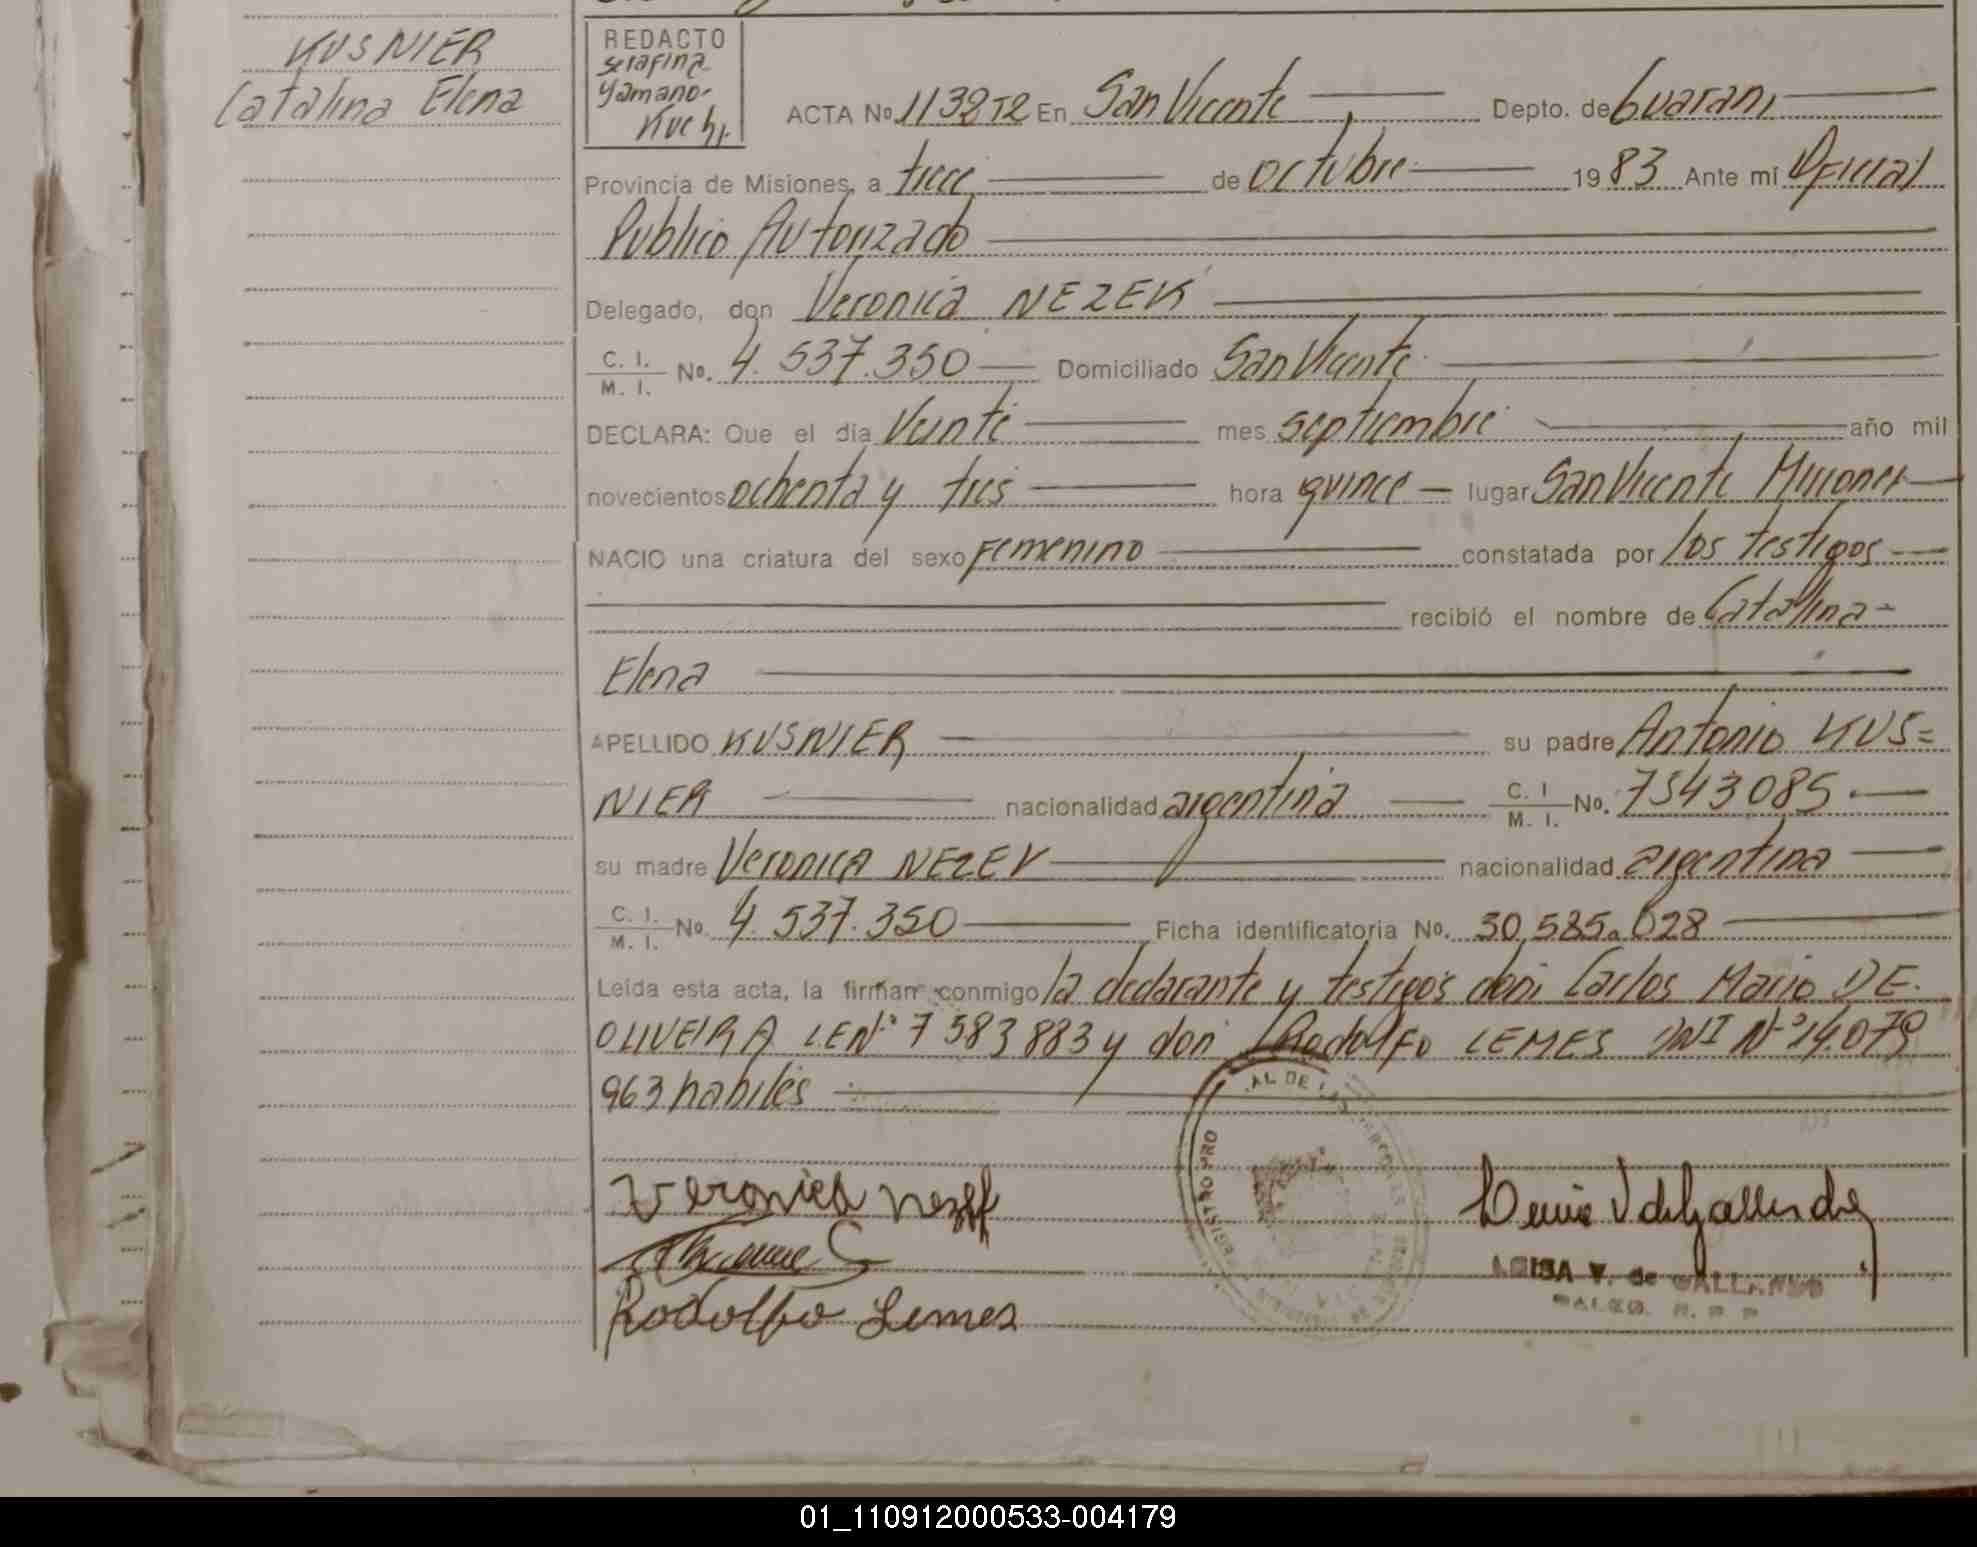 KUSNIER
Catalina Elena
REDACTO
Serafina
Yamano-
Kuchi
ACTA No 1138 T2 En San Vicente Depto. de Guarani
Provincia de Misiones, a trece de octubre 1983 Ante mi Oficial
Publico Autorizado
Delegado, don Veronica NEZEK
C. I. / M. I. No. 4.537.350 Domiciliado San Vicente
DECLARA: Que el día Veinte mes septiembre año mil
novecientos ochenta y tres hora quince lugar San Vicente Misiones
NACIO una criatura del sexo femenino constatada por los testigos
recibió el nombre de Catalina
Elena
APELLIDO KUSNIER su padre Antonio KUS=
NIER nacionalidad argentina C. I / M. I. No. 7543085
su madre Veronica NEZEK nacionalidad argentina
C. I. / M. I. No 4.537.350 Ficha identificatoria No. 30.585.628
Leída esta acta, la firman conmigo la declarante y testigos don: Carlos Mario DE
OLIVEIRA LE Nº 7583883 y don Rodolfo LEMES DNI Nº 14.079
963 habiles
Veronica Nezek
Rodolfo Lemes
V. de GALLARDO
01_110912000533-004179